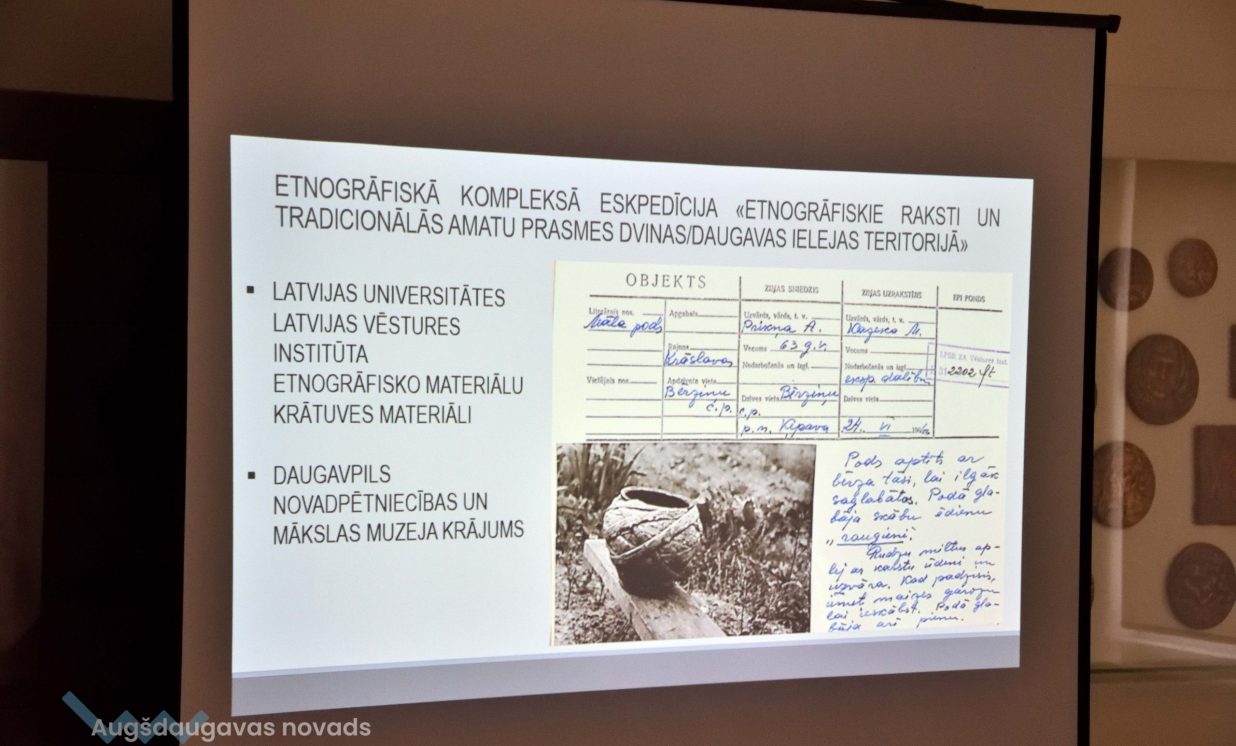 ETNOGRĀFISKĀ KOMPLEKSĀ ESKPEDĪCIJA «ETNOGRĀFISKIE RAKSTI UN
TRADICIONĀLĀS AMATU PRASMES DVINAS/DAUGAVAS IELEJAS TERITORIJĀ»
▪ LATVIJAS UNIVERSITĀTES
LATVIJAS VĒSTURES
INSTITŪTA
ETNOGRĀFISKO MATERIĀLU
KRĀTUVES MATERIĀLI
▪ DAUGAVPILS
NOVADPĒTNIECĪBAS UN
MĀKSLAS MUZEJA KRĀJUMS
OBJEKTS
Literārais nos.
Māla pods
Vietējais nos.
Apgabals
Rajons
Krāslavas
Apdzīvota vieta
Bērziņu
c.p.
ZIŅAS SNIEDZIS
Uzvārds, vārds, t. v.
A.
Vecums 63 g.v.
Nodarbošanās un izgl.
Dzīves vieta Bērziņu
c.p.
ZIŅAS UZRAKSTĪJIS
Uzvārds, vārds, t. v.
M.
Vecums
Nodarbošanās un izgl.
eksp. dalībn.
Dzīves vieta
24. VI
EFI FONDS
2202
Pods aptīts ar
bērza tāsi, lai ilgāk
saglabātos. Podā gla-
bāja skābu ēdienu
„raugieni".
Rudzu miltus ap-
lej ar karstu ūdeni un
uzvāra. Kad padzisis,
iemet maizes garozu
lai ieskābst. Podā gla-
bāja arī pienu.
Augšdaugavas novads